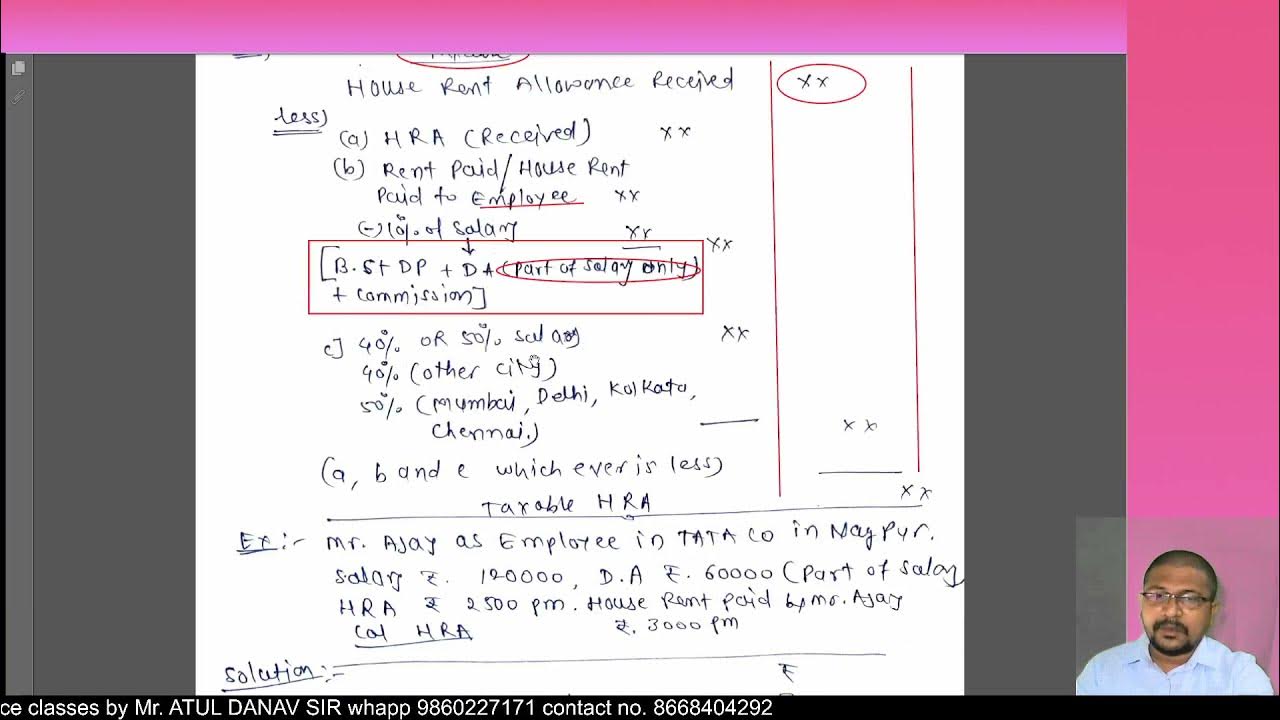 House Rent Allowance Received xx
less)
(a) HRA (Received) xx
(b) Rent Paid/House Rent
Paid to Employee xx
(-) 10% of Salary xx
xx
[B.S+ DP + DA (Part of Salary only)
+ Commission]
c] 40% OR 50% Salary xx
40% (other city)
50% (Mumbai, Delhi, Kolkata,
Chennai.)
xx
(a, b and c which ever is less)
Taxable HRA xx
Ex:- Mr. Ajay as Employee in TATA CO in Nagpur.
Salary ₹. 120000, D.A ₹. 60000 (Part of Salary
HRA ₹ 2500 pm. House Rent Paid by Mr. Ajay
Cal HRA ₹. 3000 pm
Solution:- ₹
ce classes by Mr. ATUL DANAV SIR whapp 9860227171 contact no. 8668404292